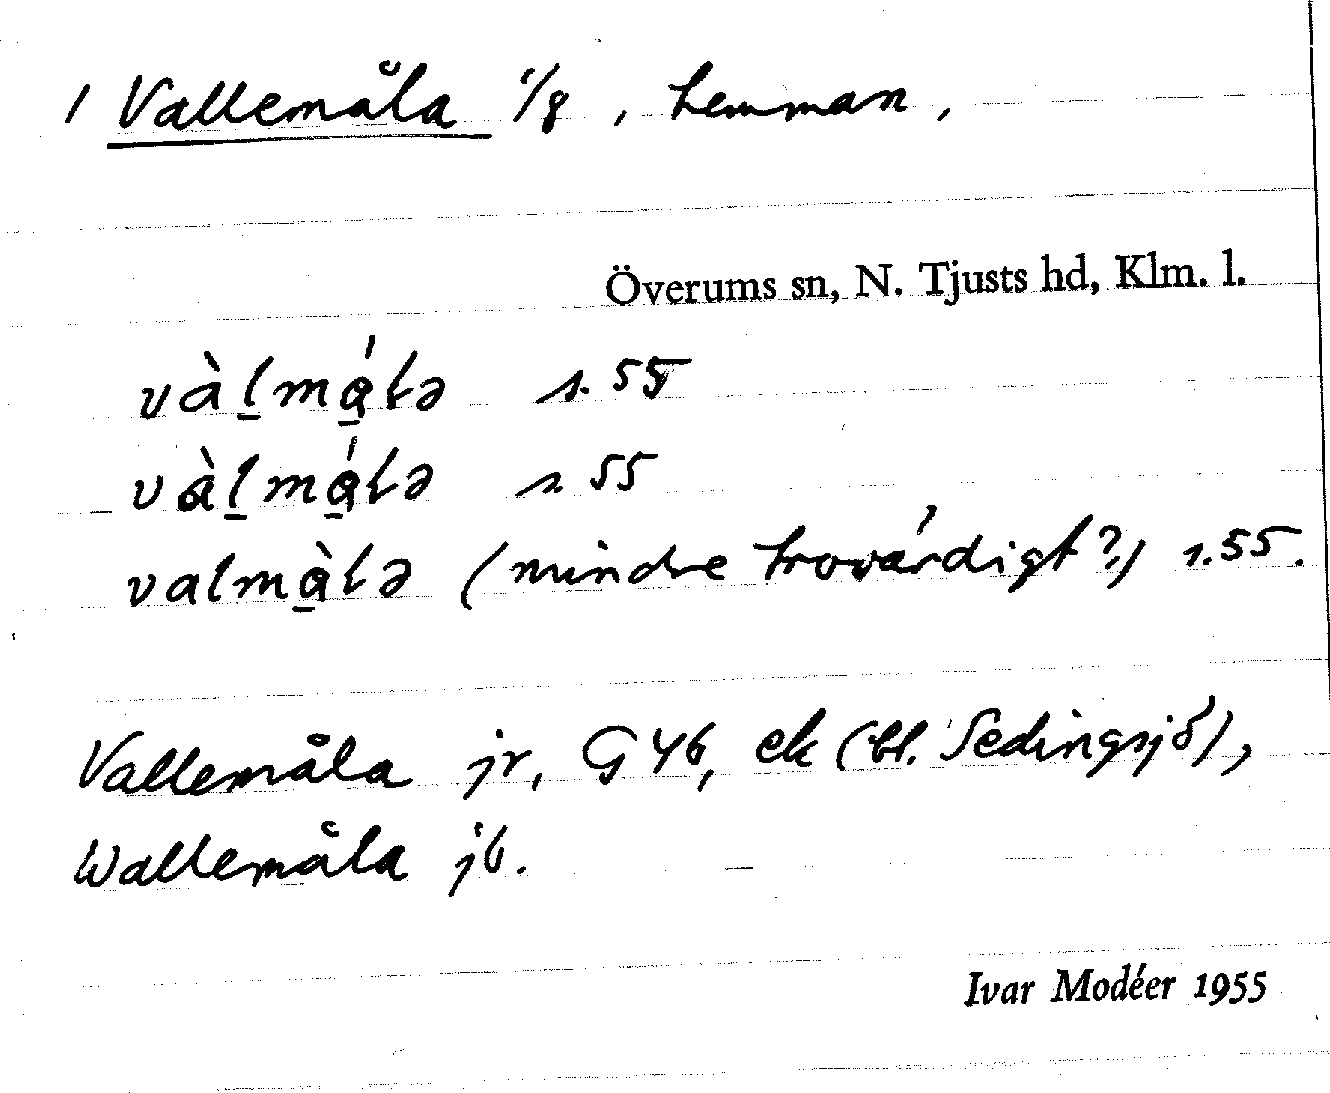 1 Vallemåla 1/8, hemman,
Överums sn, N. Tjusts hd, Klm. l.
vàl̲mą̲́lə s. 55
vàl̲mą̲́lə s 55
valmą̲̀lə (mindre trovärdigt?) s. 55.
Vallemåla jr, G 46, ek (bl. Sedingsjö),
Wallemåla jb.
Ivar Modéer 1955